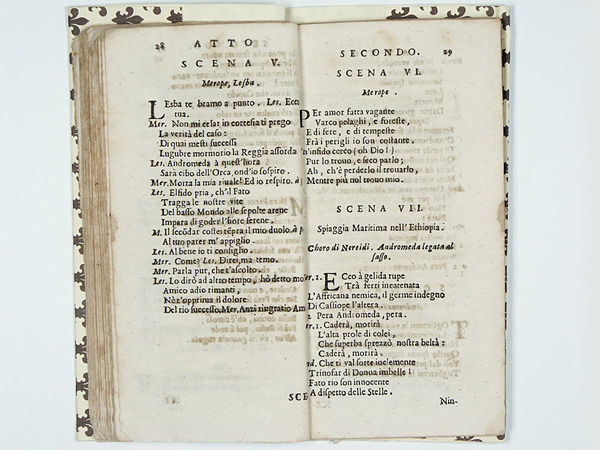 28 ATTO
SCENA V.
Merope, Lesba.
LEsba te bramo a punto. Les. Ecco
tua.
Mer. Non mi celar in cortesia ti prego
La verità del caso:
Di quai mesti successi
Lugubre mormorio la Reggia assorda
Les. Andromeda à quest'hora
Sarà cibo dell'Orca, ond'io sospiro.
Mer. Morta la mia riuale! Ed io respiro.
Les. Elfido pria, ch'il Fato
Tragga le nostre vite
Del basso Mondo alle sepolte arene
Impara di goder l'hore serene.
M. Il secōdar costei tēpra il mio duolo.
Al tuo pater m'appiglio.
Les. Al bene io ti consiglio.
Mer. Come? Les. Direi, ma temo.
Mer. Parla pur, che t'ascolto.
Les. Lo dirò ad altro tempo, hò detto mo
Amico adio rimanti,
Nè t'opprima il dolore
Del rio successo. Mer. Anzi ringratio Am
SCE
SECONDO. 29
SCENA VI.
Merope.
PEr amor fatta vagante
Varco pelaghi, e foreste,
E di fere, e di tempeste
Frà i perigli io son costante.
n'infido cerco (oh Dio!)
Pur lo trouo, e seco parlo;
Ah, ch'è perderlo il trouarlo,
Mentre più nol trouo mio.
SCENA VII.
Spiaggia Maritima nell'Ethiopia.
Choro di Nereidi. Andromeda legata al
sasso.
er. 1. ECco à gelida rupe
Trà ferri incatenata
L'Affricana nemica, il germe indegno
Di Cassiope l'altera.
2 Pera Andromeda, pera.
er. 1. Caderà, morirà
L'alta prole di colei,
Che superba sprezzò nostra beltà:
Caderà, morirà.
nd. Che ti val sorte inclemente
Trionfar di Donna imbelle!
Fato rio son innocente
A dispetto delle Stelle.
Nin-